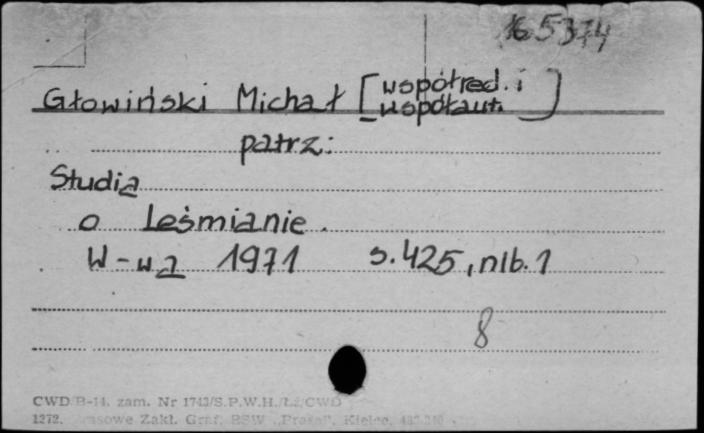 165374
Głowiński Michał [współred. i
współaut.]
patrz:
Studia
o Leśmianie.
W-wa 1971 s. 425, nlb. 1
8
CWD/B-14. zam. Nr 1743/S.P.W.H./Łż/CWD
1272. Prasowe Zakł. Graf. RSW „Prasa”, Kielce.